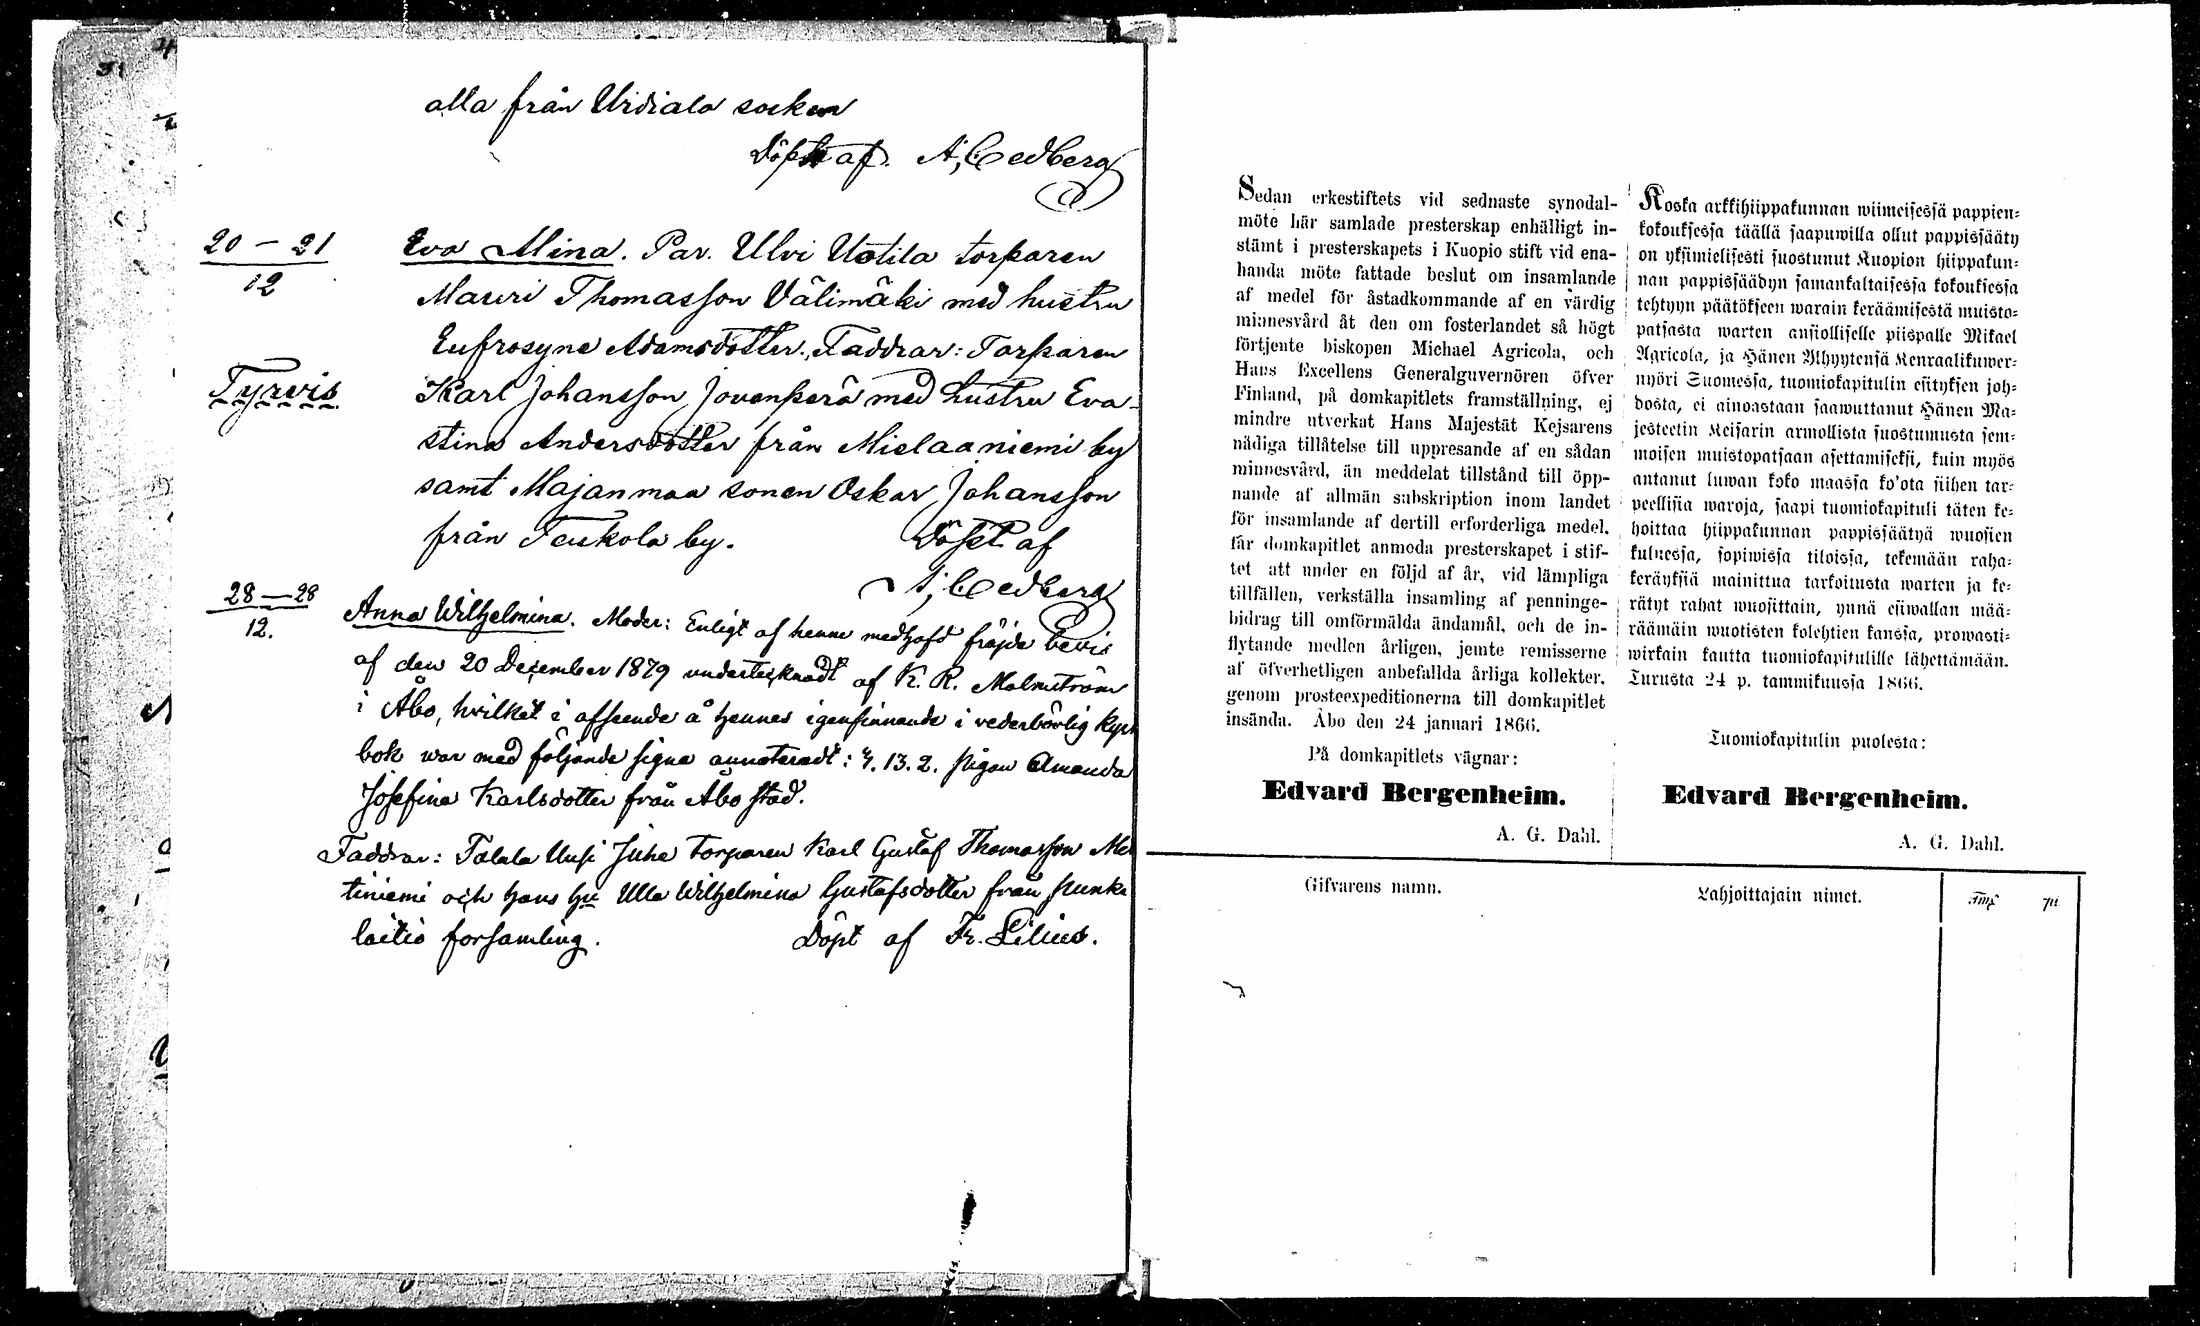 alla från Urdiala socken
Döpt af. A, Cedberg
20 – 21
12
Eva Mina. Par. Ulvi Uotila torparen
Mauri Thomasson Välimäki med hustru
Eufrosyne Adamsdotter, Faddrar: Torparen
Tyrvis
Karl Johansson Jovenperä med hustru Eva
stina Andersdotter från Mielaaniemi by
samt Majanmaa sonen Oskar Johansson
från Teukola by. Döpt af
A, Cedberg
28 — 28
12.
Anna Wilhelmina. Moder: Enligt af henne medhafd fräjde bevis
af den 20 December 1879 undertecknadt af K. R. Malmström
i Åbo, hvilket i afseende å hennes igenfinnande i vederbörlig kyrk
bok war med följande signa annoteradt: 4. 13. 2. pigan Amanda
Josefina Karlsdotter från Åbo stad.
Faddrar: Talala Uusi Juha torparen Karl Gustaf Thomasson
tiniemi och hans hu Ulla Wilhelmina Gustafsdotter från Punka
laitio forsamling. Döpt af Fr. Lilius.
Sedan erkestiftets vid sednaste synodal-
möte här samlade presterskap enhälligt in-
stämt i presterskapets i Kuopio stift vid ena-
handa möte fattade beslut om insamlande
af medel för åstadkommande af en värdig
minnesvård åt den om fosterlandet så högt
förtjente biskopen Michael Agricola, och
Hans Excellens Generalguvernören öfver
Finland, på domkapitlets framställning, ej
mindre utverkat Hans Majestät Kejsarens
nådiga tillåtelse till uppresande af en sådan
minnesvård, än meddelat tillstånd till öpp-
nande af allmän subskription inom landet
för insamlande af dertill erforderliga medel,
får domkapitlet anmoda presterskapet i stif-
tet att under en följd af år, vid lämpliga
tillfällen, verkställa insamling af penninge-
bidrag till omförmälda ändamål, och de in-
flytande medlen årligen, jemte remisserne
af öfverhetligen anbefallda årliga kollekter,
genom prosteexpeditionerna till domkapitlet
insända. Åbo den 24 januari 1866.
På domkapitlets vägnar:
Edvard Bergenheim.
A. G. Dahl.
Koska arkkihiippakunnan wiimeisessä pappien=
kokouksessa täällä saapuwilla ollut pappissääty
on yksimielisesti suostunut Kuopion hiippakun=
nan pappissäädyn samankaltaisessa kokouksessa
tehtyyn päätökseen warain keräämisestä muisto=
patsasta warten ansiolliselle piispalle Mikael
Agricola, ja Hänen Ylhyytensä Kenraalikuwer=
nyöri Suomessa, tuomiokapitulin esityksen joh=
dosta, ei ainoastaan saawuttanut Hänen Ma=
jesteetin Keisarin armollista suostumusta sem=
moisen muistopatsaan asettamiseksi, kuin myös
antanut luwan koko maassa ko'ota siihen tar=
peellisia waroja, saapi tuomiokapituli täten ke=
hoittaa hiippakunnan pappissäätyä wuosien
kuluessa, sopiwissa tiloissa, tekemään raha=
keräyksiä mainittua tarkoitusta warten ja ke=
rätyt rahat wuosittain, ynnä esiwallan mää=
räämäin wuotisten kolehtien kanssa, prowasti=
wirkain kautta tuomiokapitulille lähettämään.
Turusta 24 p. tammikuussa 1866.
Tuomiokapitulin puolesta:
Edvard Bergenheim.
A. G. Dahl.
Gifvarens namn.
Lahjoittajain nimet.
Fmk pi